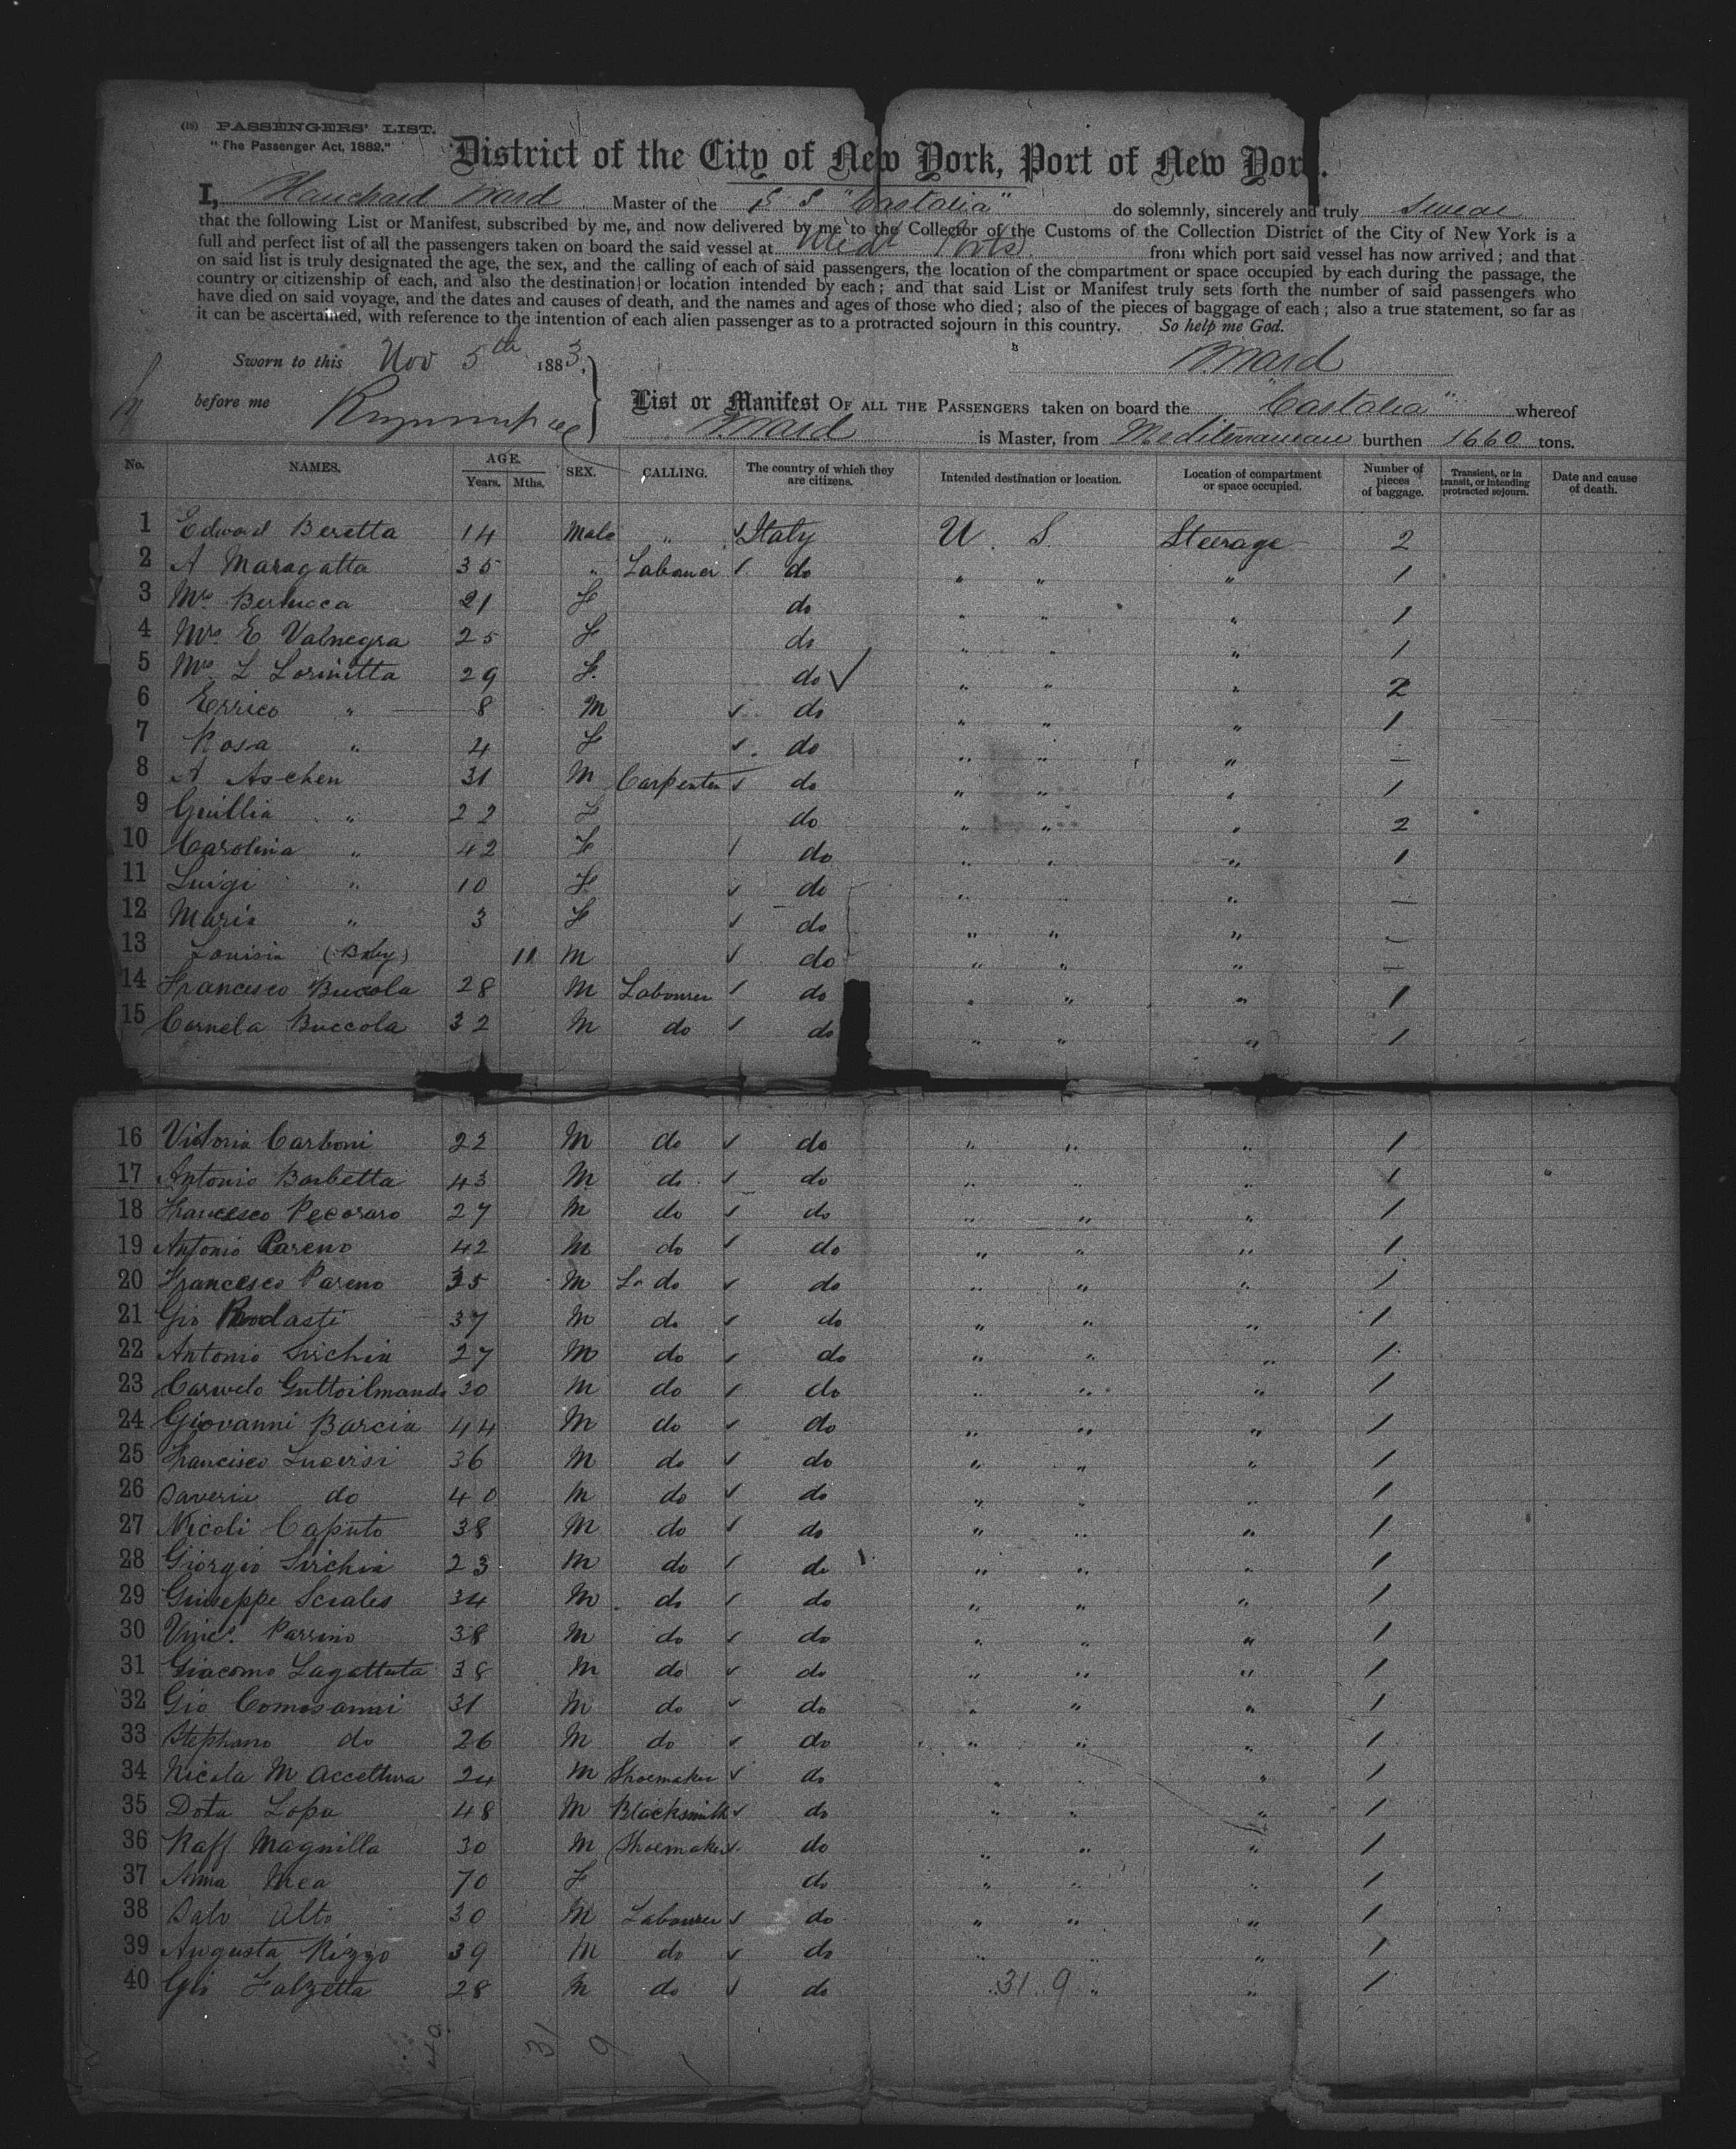 (18) PASSENGERS' LIST.
"The Passenger Act, 1882."
District of the City of New York, Port of New York.
I, Ward Master of the S. S "Castalia" do solemnly, sincerely and truly swear
that the following List or Manifest, subscribed by me, and now delivered by me to the Collector of the Customs of the Collection District of the City of New York is a
full and perfect list of all the passengers taken on board the said vessel at Medt Ports from which port said vessel has now arrived; and that
on said list is truly designated the age, the sex, and the calling of each of said passengers, the location of the compartment or space occupied by each during the passage, the
country or citizenship of each, and also the destination or location intended by each; and that said List or Manifest truly sets forth the number of said passengers who
have died on said voyage, and the dates and causes of death, and the names and ages of those who died; also of the pieces of baggage of each; also a true statement, so far as
it can be ascertained, with reference to the intention of each alien passenger as to a protracted sojourn in this country. So help me God.
Sworn to this Nov 5th 1883,
B Ward
before me
List or Manifest OF ALL THE PASSENGERS taken on board the "Castalia" whereof
B Ward is Master, from Mediterranean burthen 1660 tons.
No. NAMES. AGE. Years. Mths. SEX. CALLING. The country of which they are citizens. Intended destination or location. Location of compartment or space occupied. Number of pieces of baggage. Transient, or in transit, or intending protracted sojourn. Date and cause of death.
1 Edward Beretta 14 Male " Italy U. S. Steerage 2
2 A Maragatta 35 " Labourer do " " " 1
3 Mrs Bertucca 21 F do " " " 1
4 Mrs E Valnegra 25 F do " " " 1
5 Mrs L Lorinitta 29 F. do " " " 2
6 Errico " 8 M do " " " 1
7 Rosa " 4 F do " " " —
8 A Aschen 31 M Carpenter do " " " 1
9 Guillia " 22 F do " " " 2
10 Carolina " 42 F do " " " 1
11 Luigi " 10 F do " " " —
12 Maria " 3 F do " " " —
13 Louisia (Baby) 11 M do " " " —
14 Francesco Bucola 28 M Labourer do " " " 1
15 Carnela Buccola 32 M do do " " " 1
16 Victoria Carboni 22 M do do " " " 1
17 Antonio Barbetta 43 M do do " " " 1
18 Francesco Pecoraro 27 M do do " " " 1
19 Antonio Pareno 42 M do do " " " 1
20 Francesco Pareno 35 M La do do " " " 1
21 Gio 37 M do do " " " 1
22 Antonio Sirchia 27 M do do " " " 1
23 Carmelo Guttoilmando 30 M do do " " " 1
24 Giovanni Barcia 44 M do do " " " 1
25 Francisco 36 M do do " " " 1
26 Saveria do 40 M do do " " " 1
27 Nicoli Caputo 38 M do do " " " 1
28 Giorgio Sirchia 23 M do do " " " 1
29 Guiseppe Scales 34 M do do " " " 1
30 Vinc. Parrino 38 M do do " " " 1
31 Giacomo Lagattuta 38 M do do " " " 1
32 Gio 31 M do do " " " 1
33 Stephano do 26 M do do " " " 1
34 Nicola M Accettura 24 M Shoemaker do " " " 1
35 Dota Lopa 48 M Blacksmith do " " " 1
36 Raff Magnilla 30 M Shoemaker do " " " 1
37 Anna 70 F do " " " 1
38 Salv Alto 30 M Labourer do " " " 1
39 Augusta Rizzo 39 M do do " " " 1
40 Gio Falzetta 28 M do do 31. 9 " " 1
31 9